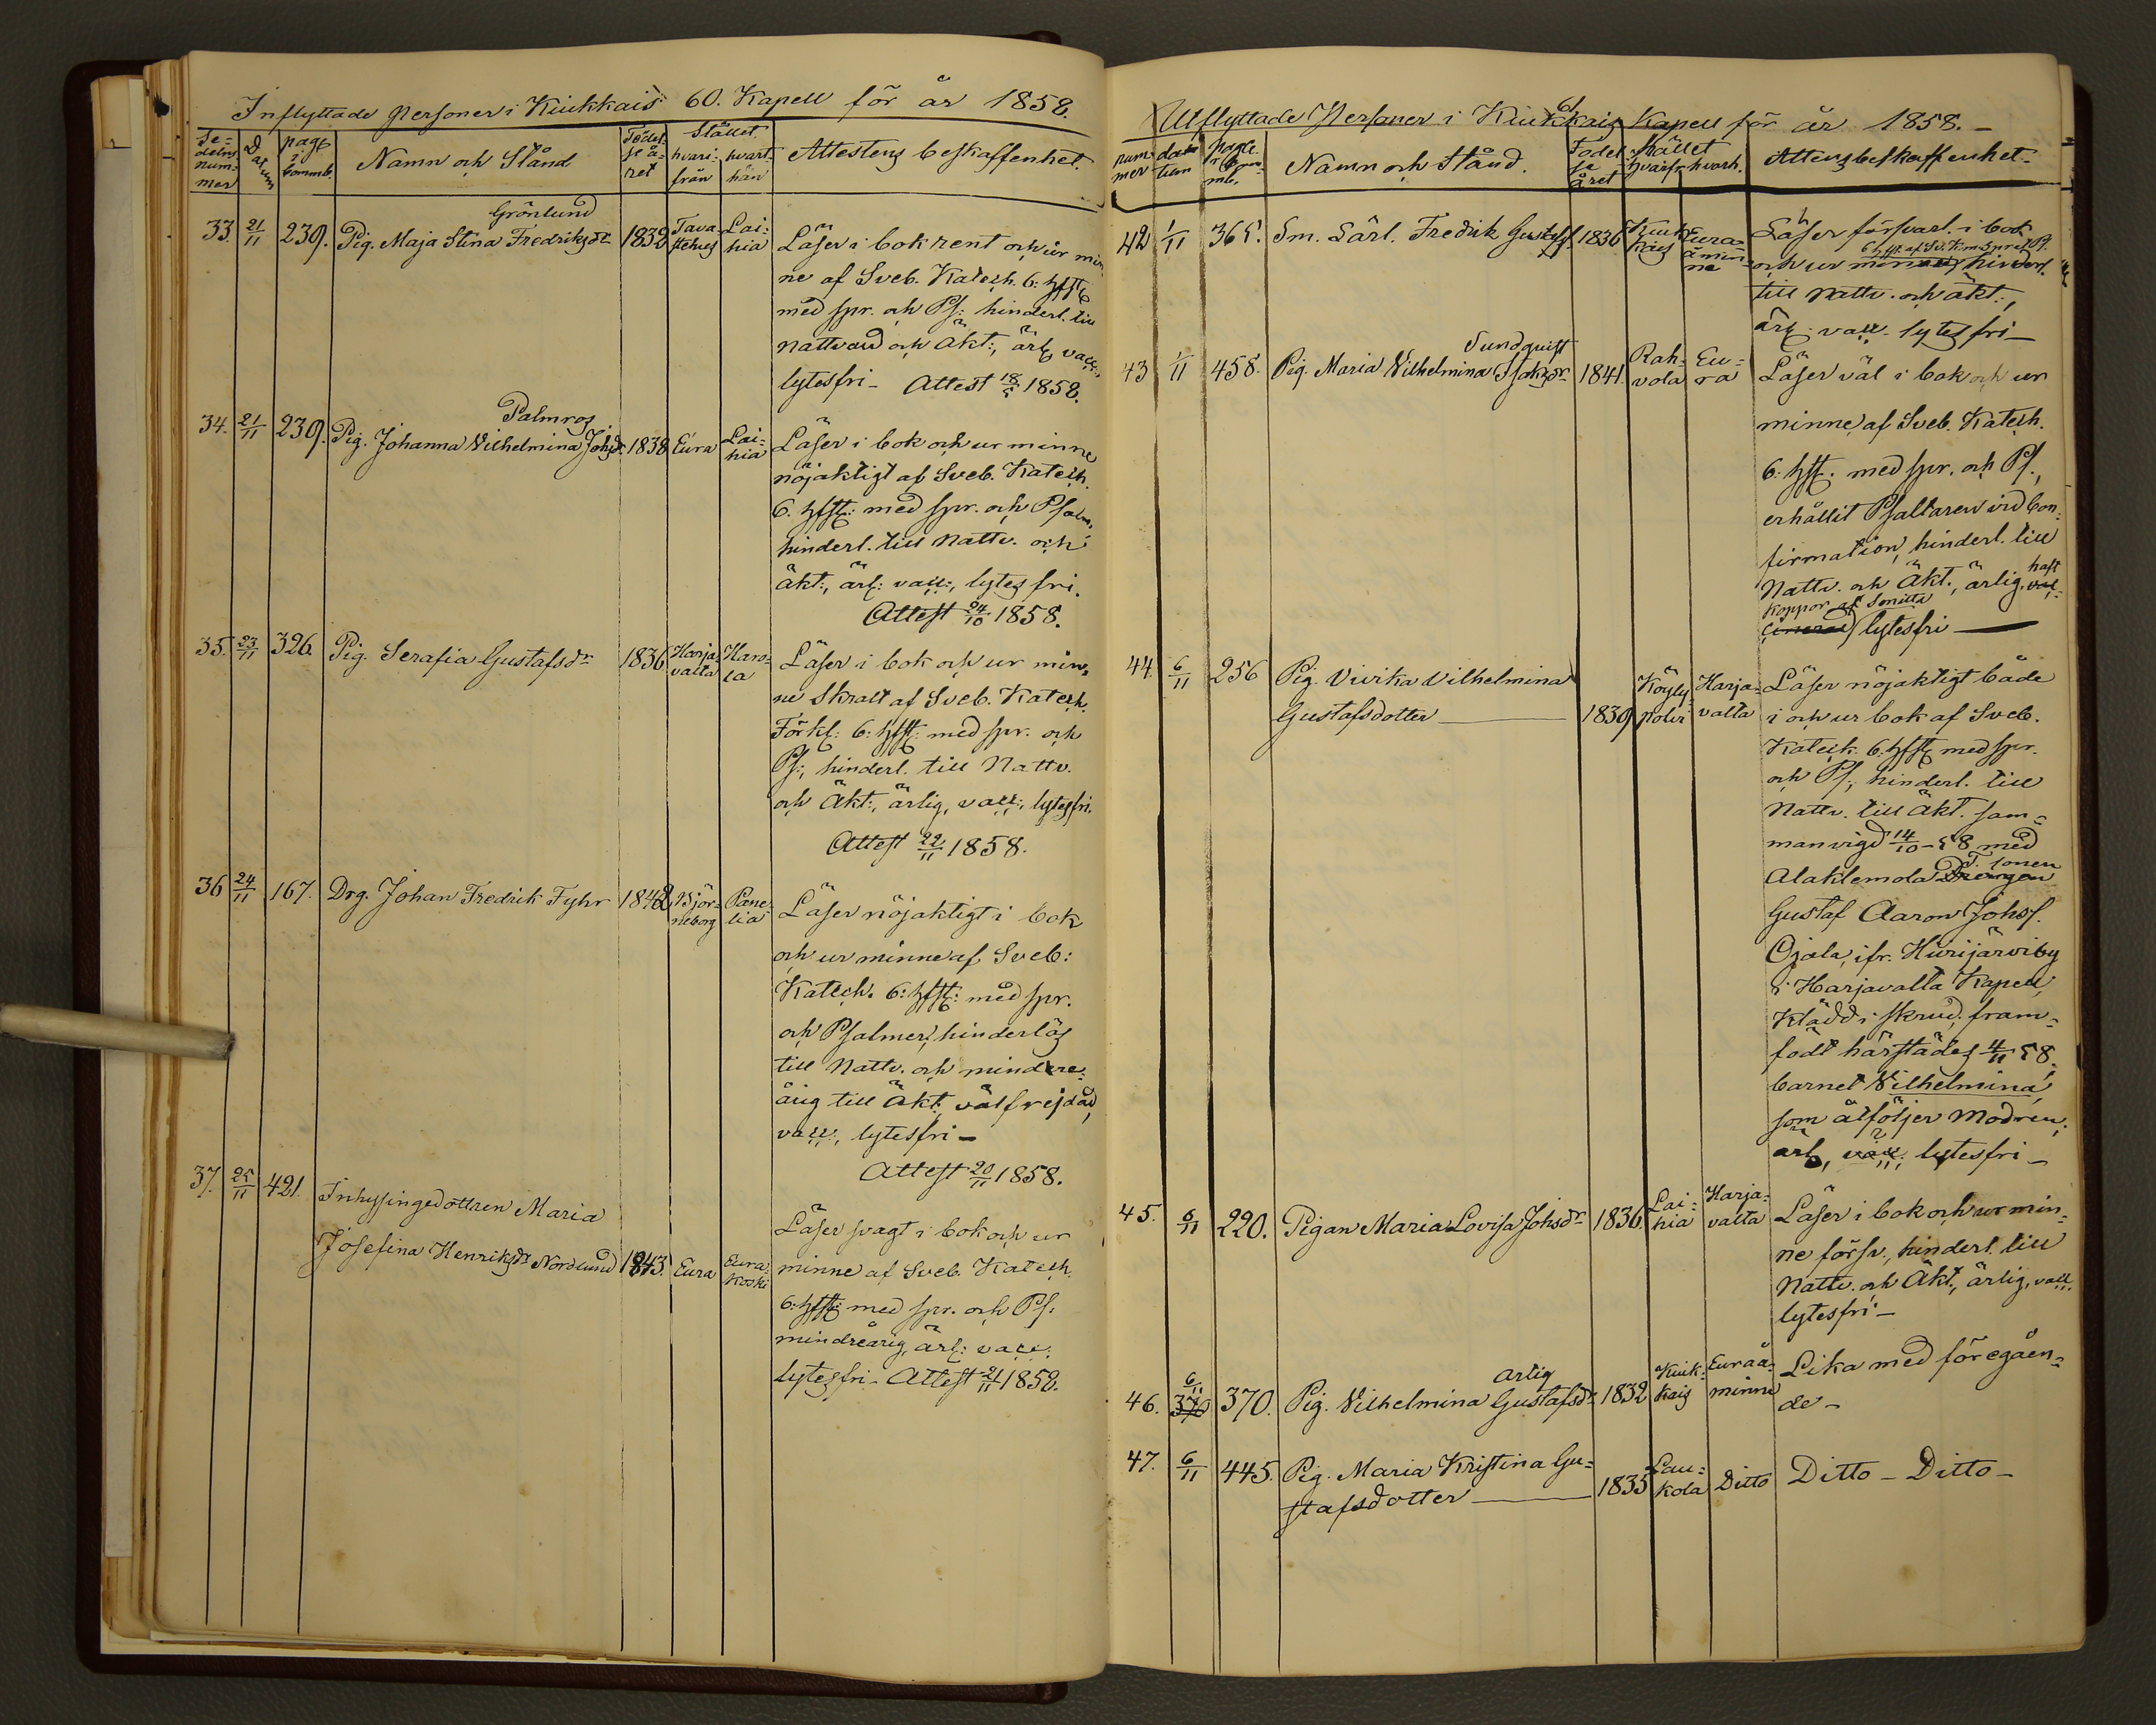 Inflyttade Personer i Kiukkais 60. Kapell för år 1858.
Se-
delns
num-
mer
Datum
page
i
Commb.
Namn och Stånd
Födel
se å-
ret
Stället
hvari-
från
hvart-
hän
Attestens beskaffenhet.
33. 21/11 239. Pig. Maja Stina Fredriksdr Grönlund 1832 Tava-
stehus Lai-
hia
Läser i bok rent och ur min
ne af Sveb. Katech. 6: hfst:
med spr. och Ps: hinderl. till
nattvard och Äkt:, ärl: vacc:,
lytesfri - Attest 18/5 1858.
34. 21/11 239. Pig. Johanna Vilhelmina Johsdr Palmros 1838 Eura Lai-
hia
Läser i bok och ur minne
nöjaktigt af Sveb. Katech.
6. hfst: med spr. och Psalm,
hinderl. till nattv. och
äkt:, ärl: vacc:, lytes fri.
Attest 24/10 1858.
35. 23/11 326. Pig. Serafia Gustafsdr 1836 Harja-
valta Haro-
la
Läser i bok och ur min-
ne skralt af Sveb. Katech.
Förkl: 6: hfst: med spr. och
Ps:, hinderl. till Nattv.
och Äkt:, ärlig, vacc:, lytesfri.
Attest 22/11 1858.
36 24/11 167. Drg. Johan Fredrik Fyhr 1842 Björ-
neborg Pane-
lia
Läser nöjaktigt i bok
och ur minne af Sveb:
Katech. 6: hfst: med spr.
och Psalmer, hinderlös
till Nattv. och mindre-
årig till Äkt: välfrejdad,
vacc:, lytesfri -
Attest 20/11 1858.
37. 25/11 421. Inhysingedottren Maria
Josefina Henriksdr Nordlund 1843. Eura Eura-
koski
Läser svagt i bok och ur
minne af Sveb. Katech.
6: hfst: med spr. och Ps:
mindreårig, ärl: vacc:
lytesfri - Attest 21/11 1858.
61
Utflyttade Personer i Kiukkais Kapell för år 1858. -
num-
mer
da-
tum
Page
i Com-
mb.
Namn och Stånd.
Födel
se
året
Stället
hvarifr. hvarh.
Attens beskaffenhet.
42 1/11 365. Sm. Lärl. Fredrik Gustafss. 1836 Kiuk-
kais Eura-
åmin-
ne
Läser försvarl. i bok
6 hfst. af Sv. K. m. spr. o. Ps.
och ur minne, hinderl.
till nattv. och äkt:,
ärl: vacc. lytesfri -
43 1/11 458. Pig. Maria Vilhelmina Isaksdr Sundquist 1841. Rah-
vola Eu-
ra
Läser väl i bok och ur
minne, af Sveb. Katech.
6. hfst. med spr. och Ps.,
erhållit Psaltaren vid Con-
firmation, hinderl. till
Nattv. och Äkt., ärlig, haft
koppor af Smitta
lytesfri -
44. 6/11 256 Pig. Vivika Vilhelmina
Gustafsdotter 1839 Köyly-
polvi Harja-
valta
Läser nöjaktigt både
i och ur bok af Sveb.
Katech. 6. hfst: med spr.
och Ps:, hinderl. till
Nattv. till äkt. sam-
manvigd 14/10 - 58 med
Alaklemola T. sonen
Gustaf Aaron Johss.
Ojala, ifr. Hiirijärviby
i Harjavalta Kapell,
klädd i skrud, fram-
födt härstädes 4/11 58.
barnet Vilhelmina,
som åtföljer Modren,
ärl, vacc:, lytesfri -
45. 6/11 220. Pigan Maria Lovisa Johsdr 1836. Lai-
hia Harja-
valta
Läser i bok och ur min-
ne försv., hinderl. till
Nattv. och Äkt, ärlig, vacc.
lytesfri -
46. 6/11 370 370. Pig. Vilhelmina Gustafsdr Arlig 1832 Kiuk-
kais Euraå-
minne
Lika med föregåen-
de -
47. 6/11 445. Pig. Maria Kristina Gu-
stafsdotter 1835 Lau-
kola Ditto Ditto - Ditto -